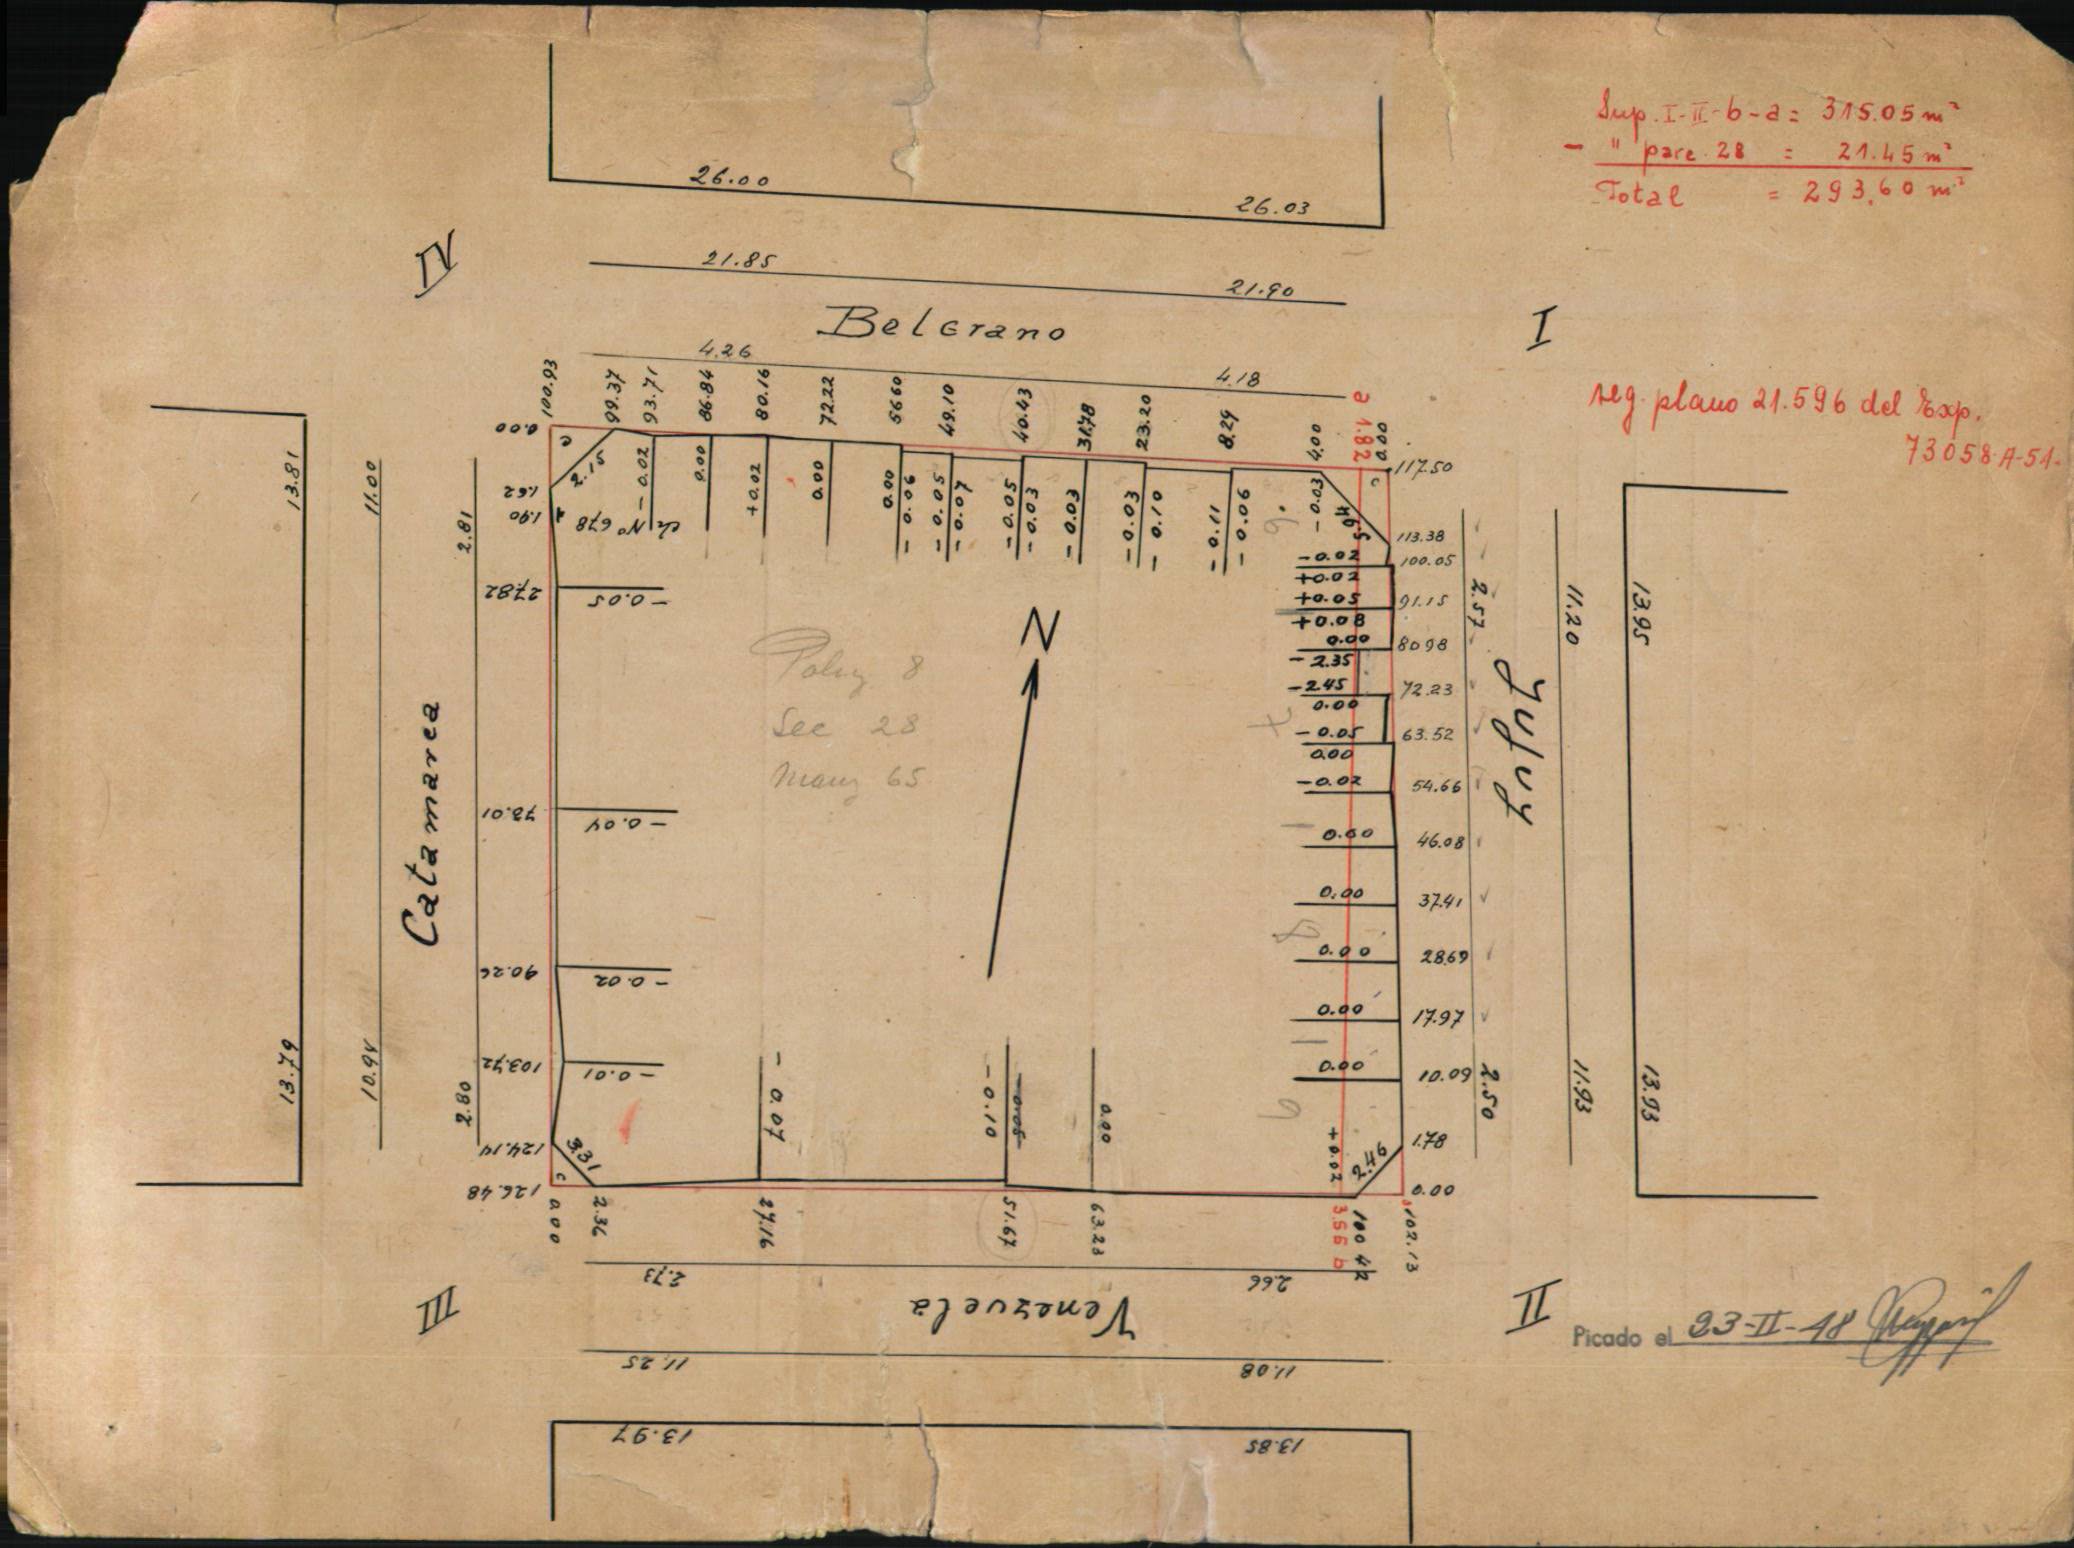 Sup. I-II-b-a = 315.05 m²
- " parc. 28 = 21.45 m²
Total = 293,60 m²
26.00
26.03
IV
21.85
21.90
Belgrano
I
4.26
4.18
seg. plano 21.596 del Exp.
73058-A-51-
100.93
99.37
93.71
86.84
80.16
72.22
56.60
49.10
40.43
31.78
23.20
8.29
4.00
a 1.82
0.00
117.50
0.00
c
2.15
-0.02
0.00
+0.02
0.00
0.00
-0.06
-0.05
-0.07
-0.05
-0.03
-0.03
-0.03
-0.10
-0.11
-0.06
-0.03
4.65
c
1.62
1.90
ch Nº 678
13.81
11.00
2.81
27.82
-0.05
113.38
-0.02
100.05
+0.02
+0.05
91.15
+0.08
0.00
80.98
-2.35
-2.45
72.23
0.00
-0.05
63.52
0.00
-0.02
54.66
0.00
46.08
0.00
37.41
0.00
28.69
0.00
17.97
0.00
10.09
2.57
11.20
13.95
Jujuy
N
Sec 28
Manz 65
Catamarca
73.01
-0.04
90.26
-0.02
103.72
-0.01
13.79
10.94
2.80
124.14
3.31
c
126.48
-0.07
-0.10
-0.05
0.00
+0.02
2.46
1.78
0.00
2.50
11.93
13.93
0.00
2.36
27.16
51.67
63.23
3.56 b
100.42
102.13
2.73
2.66
III
Venezuela
II
Picado el 23-II-48
11.25
11.08
13.97
13.85